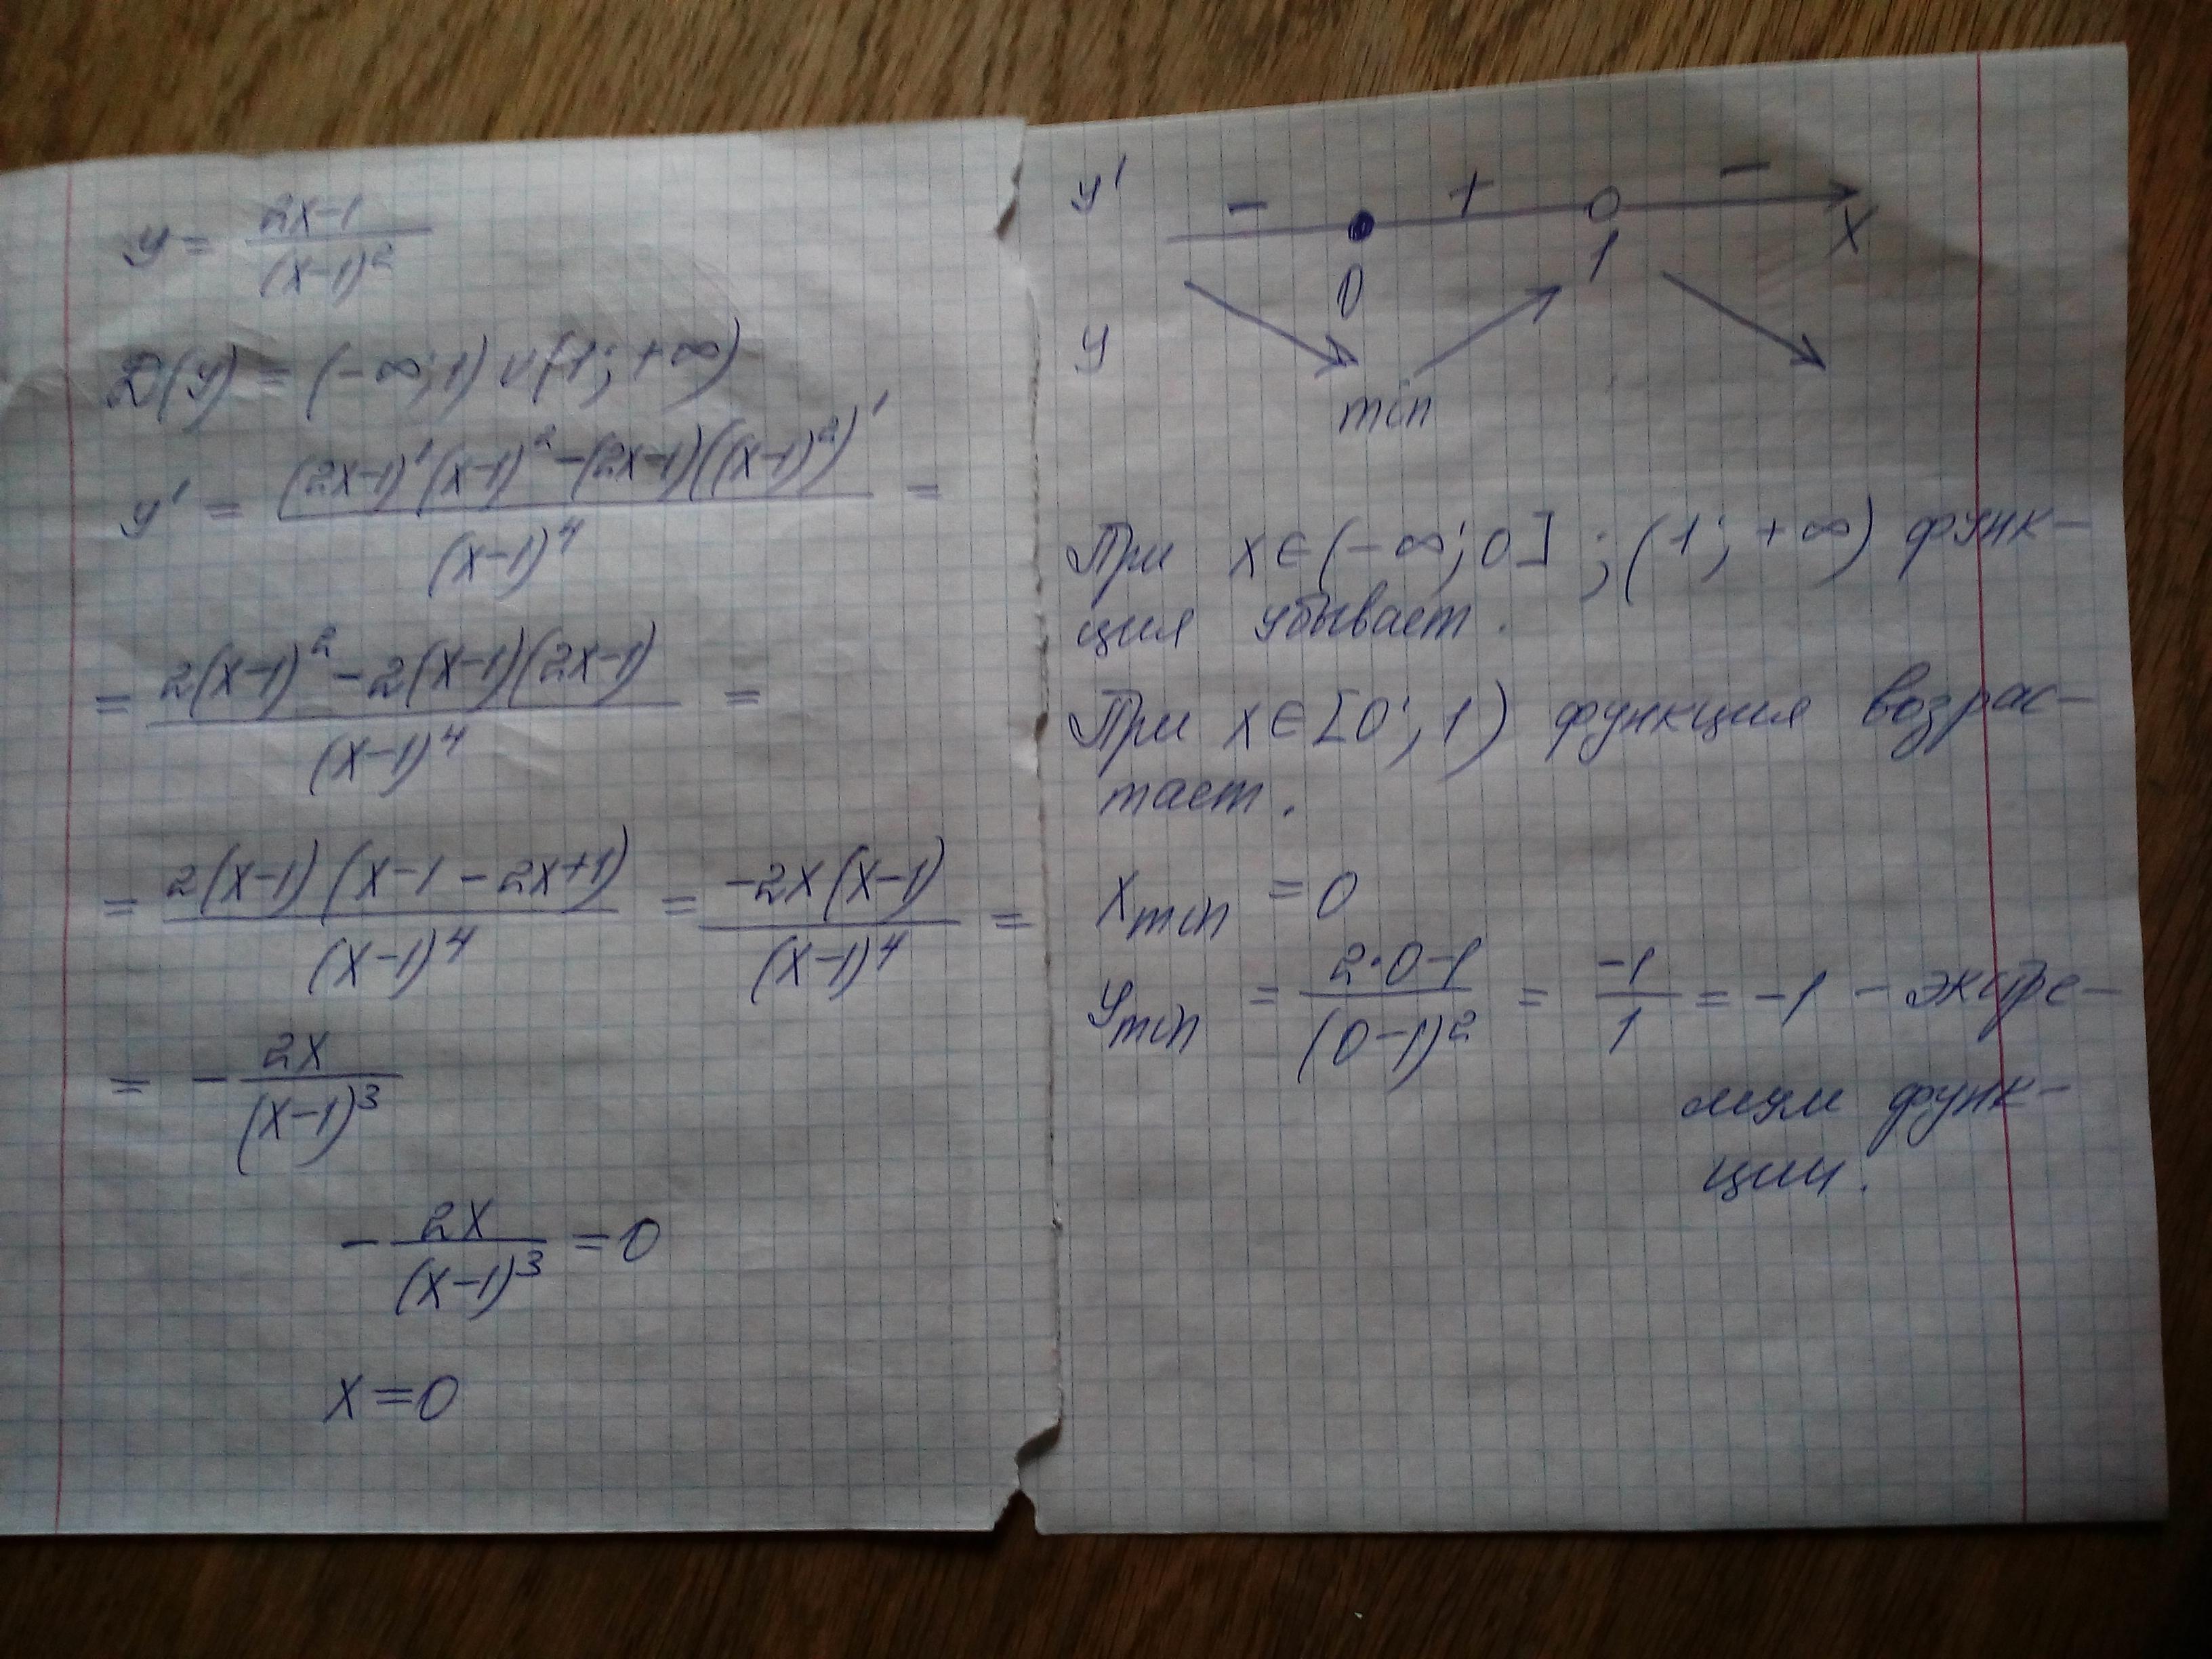 y = (2x-1)/(x-1)²
D(y) = (-∞; 1) ∪ (1; +∞)
y' = ((2x-1)'(x-1)² - (2x-1)((x-1)²)')/(x-1)⁴ =
= (2(x-1)² - 2(x-1)(2x-1))/(x-1)⁴ =
= (2(x-1)(x-1-2x+1))/(x-1)⁴ = (-2x(x-1))/(x-1)⁴ =
= - 2x/(x-1)³
- 2x/(x-1)³ = 0
x = 0
y' - + -
0 1 x
y
min
При x ∈ (-∞; 0] ; (1; +∞) функ-
ция убывает.
При x ∈ [0; 1) функция возрас-
тает.
x min = 0
y min = (2·0-1)/(0-1)² = -1/1 = -1 - экстре-
мум функ-
ции.